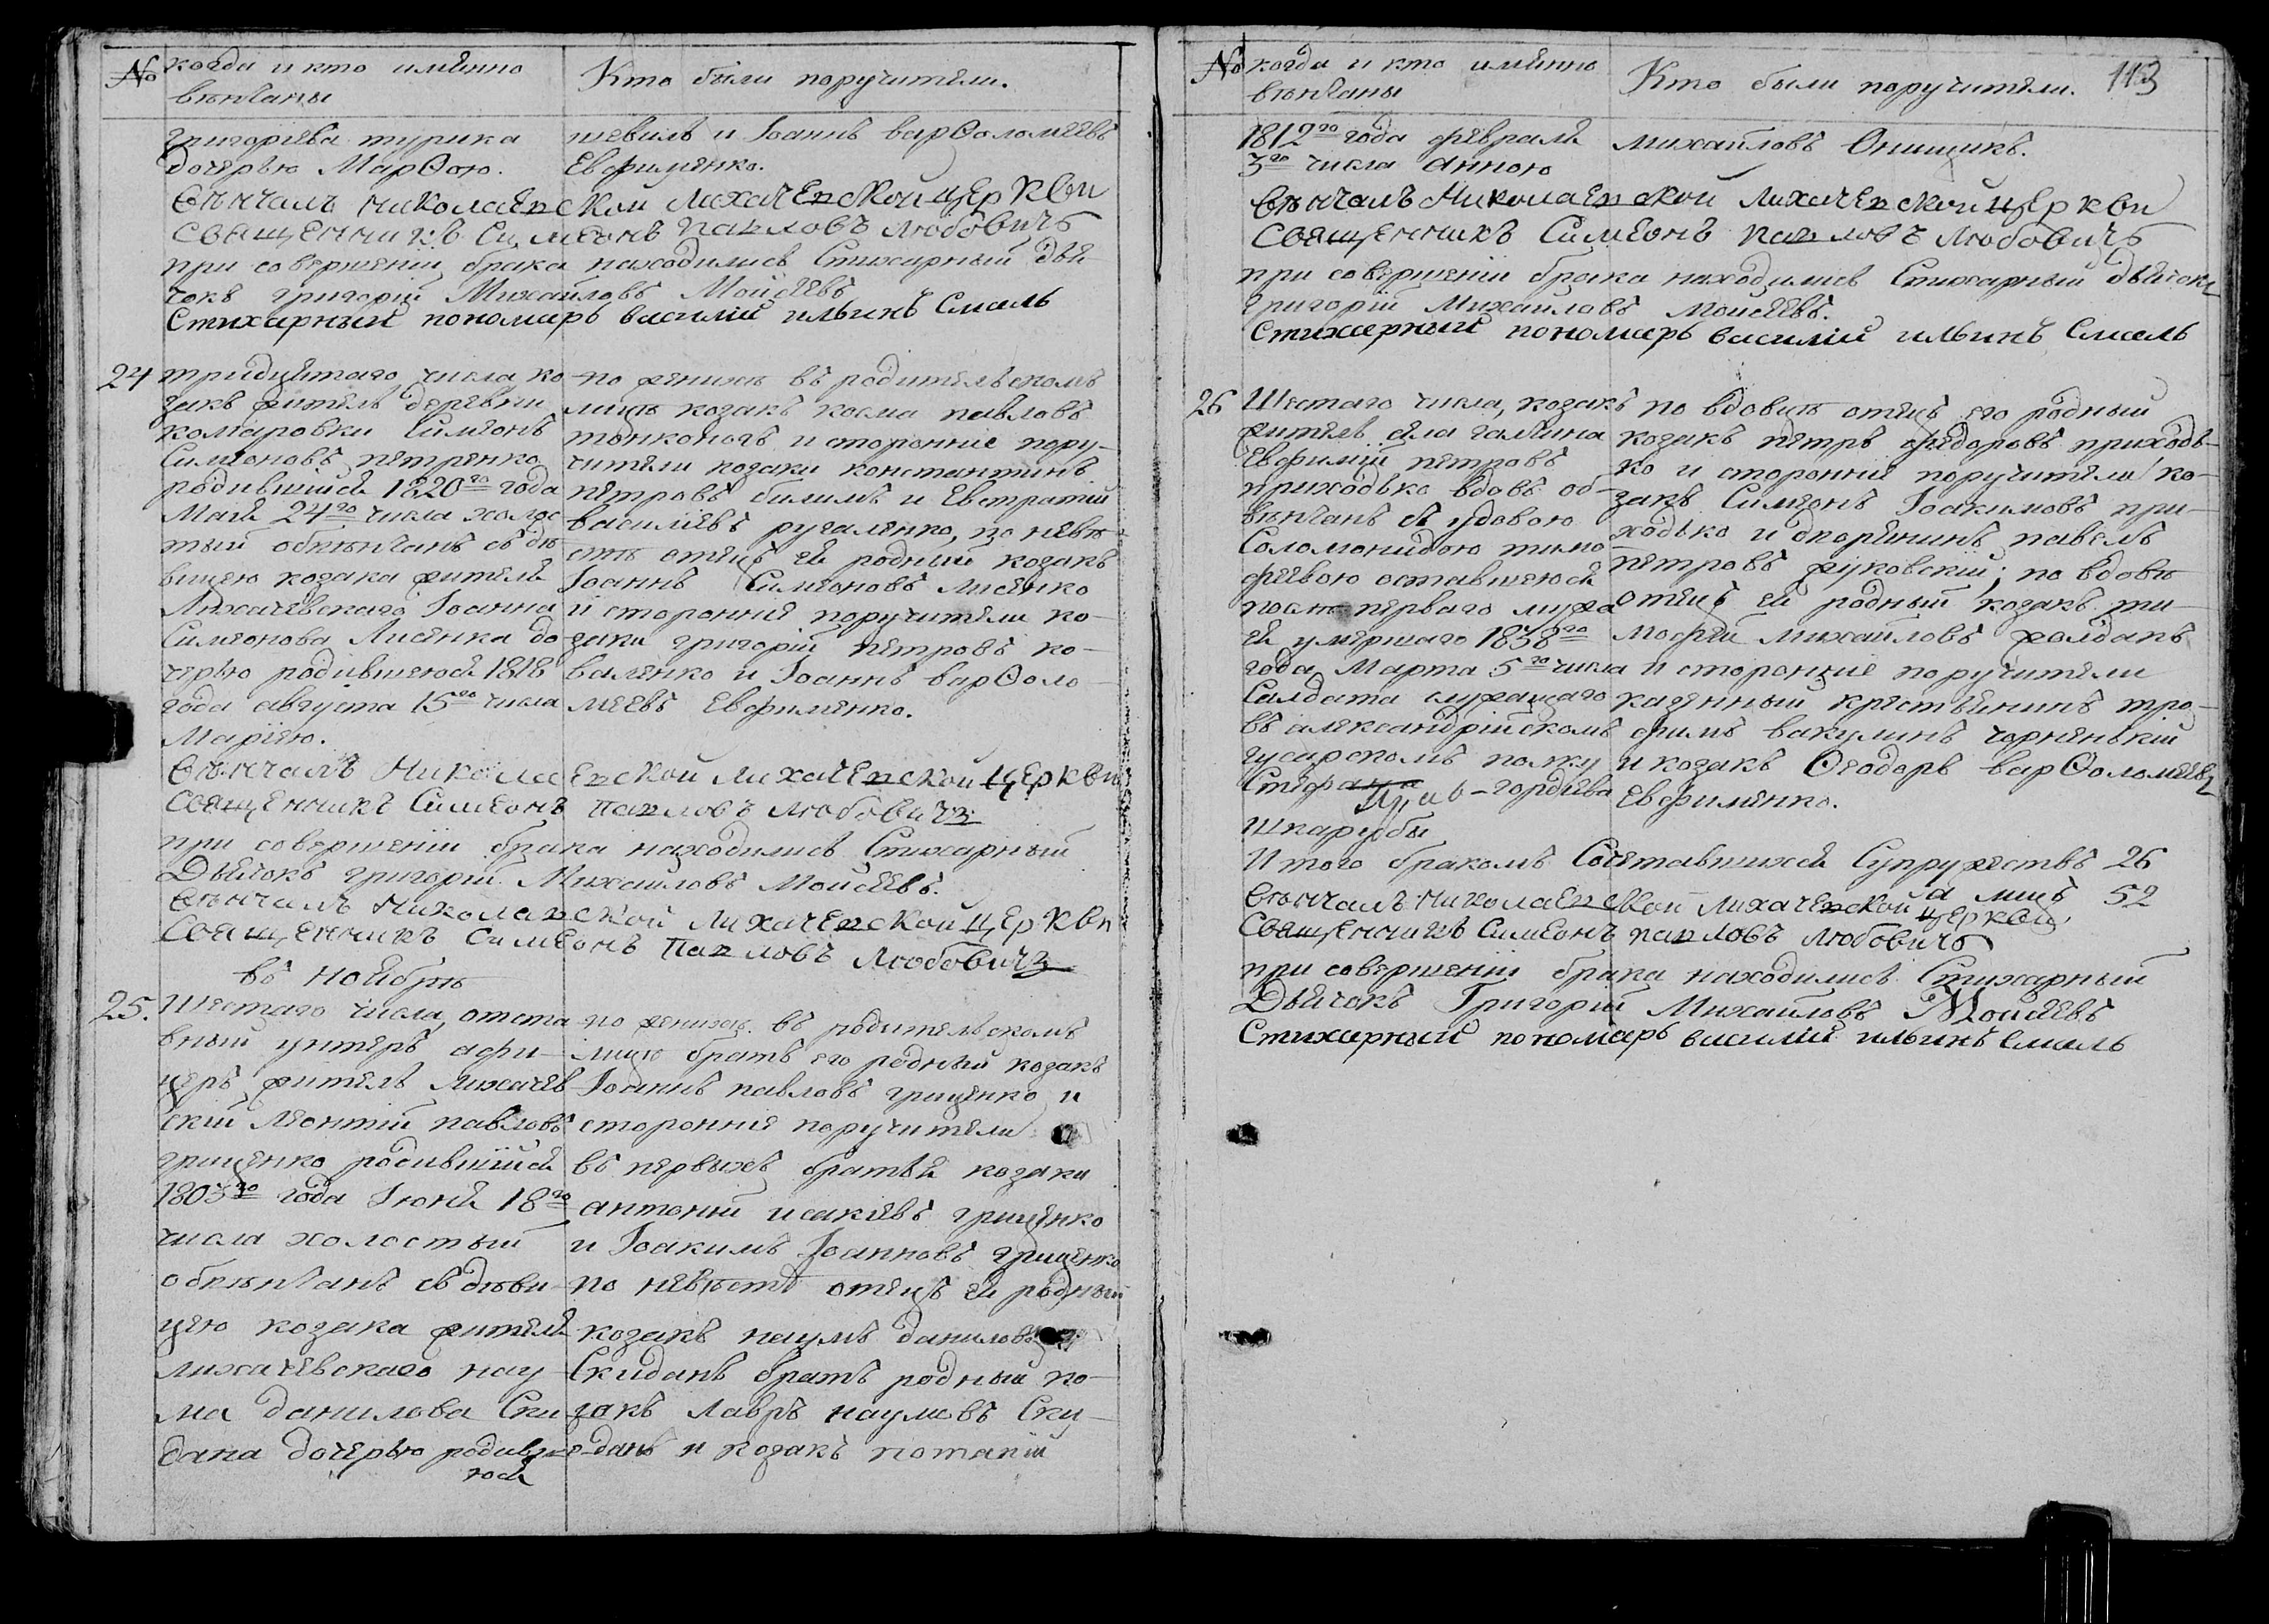 №
когда и кто имянно
вѣнчаны
Кто были поручители.
григорѣва турика
дочерью Марѳою.
шевиль и Іоаннъ варѳоломѣевъ
Евфименко.
вѣнчалъ николаевской лихачевской церкви
священникъ Симеонъ павловъ любовичъ
при совершеніи брака находились Стихарный дья
чокъ григорій Михайловъ Мойсеевъ
Стихарный пономарь василій ильинъ Смаль
24
тридцятаго числа ко
закъ житель деревни
комаровки Симеонъ
Симеоновъ петренко
родившійся 1820го года
Мая 24го числа холос
тый обвѣнчанъ съ дѣ
вицею козака жителя
Лихачевскаго Іоанна
Симеонова Лисенка до
черью родившеюся 1818
года августа 15го числа
Маріею.
по женихѣ въ родительскомъ
мицѣ козакъ косма павловъ
тонконогъ и сторонніе пору-
чители козаки константинъ
петровъ билимъ и Евстратій
василіевъ ругаленко, по невѣ
стѣ отецъ ея родный козакъ
Іоаннъ Симеоновъ Лисенко
и сторонніе поручители ко-
заки григорій петровъ ко-
валенко и Іоаннъ варѳоло
мѣевъ Евфименко.
вѣнчалъ Николаевской лихачевской церкви
священникъ Симеонъ павловъ любовичъ
при совершеніи брака находились Стихарный
Дьячокъ григорій Михайловъ Мойсеевъ.
вѣнчалъ николаевской лихачевской церкви
священникъ симеонъ павловъ любовичъ
въ ноябрѣ
25.
Шестаго числа, отста
вный унтеръ афи-
церъ житель лихачев
скій леонтій павловъ
грищенко родившійся
1803го года Іюня 18го
числа холостый
обвѣнчанъ съ дѣви-
цею козака жителя
лихачевскаго нау-
ма данилова Ски
дана дочерью родивше
юся
по женихѣ въ родительскомъ
мицѣ братъ его родный козакъ
Іоаннъ павловъ грищенко и
сторонніе поручители
въ первыхъ братья козаки
антоній исакіевъ грищенко
и Іоакимъ Іоанновъ грищенко
по невѣстѣ отецъ ея родный
козакъ наумъ даниловъ
Скиданъ братъ родный ко-
закъ лавръ наумовъ Ски-
данъ и козакъ потапій
№
когда и кто имянно
вѣнчаны
Кто были поручители.
113
1812го года февраля
3го числа анною
михайловъ Онищикъ.
вѣнчалъ Николаевской лихачевской церкви
священникъ Симеонъ павловъ любовичъ
при совершеніи брака находились Стихарный дьячокъ
григорій Михайловъ Мойсеевъ.
Стихарный пономарь василій ильинъ Смаль
26
Шестаго числа, козакъ
житель села галкина
Евфимій петровъ
приходько вдовъ об-
вѣнчанъ съ удовою
Соломонидою тимо
феевою оставшеюся
послѣ перваго мужа
ея умершаго 1838го
года Марта 5го числа
Салдата служащаго
въ александрійскомъ
гусарскомъ полку
Стефана
гордѣева
шкарубы
по вдовцѣ отецъ его родный
козакъ петръ федоровъ приходь-
ко и сторонніе поручители ко-
закъ Симеонъ Іоакимовъ при-
ходько и дворенинъ павелъ
петровъ жуковскій; по вдовѣ
отецъ ея родный козакъ ти-
мофій михайловъ жолданъ
и сторонніе поручители
казенный крестьянинъ тро-
фимъ вакулинъ чорненькій
и козакъ Ѳеодоръ варѳоломѣевъ
Евфименко.
Итого бракомъ Сочетавшихся Супружествъ 26
а лицъ 52
вѣнчалъ николаевской лихачевской церкви
священникъ Симеонъ павловъ любовичъ
при совершеніи брака находились Стихарный
Дьячокъ Григорій Михайловъ Мойсеевъ
Стихарный пономарь василій ильинъ Смаль